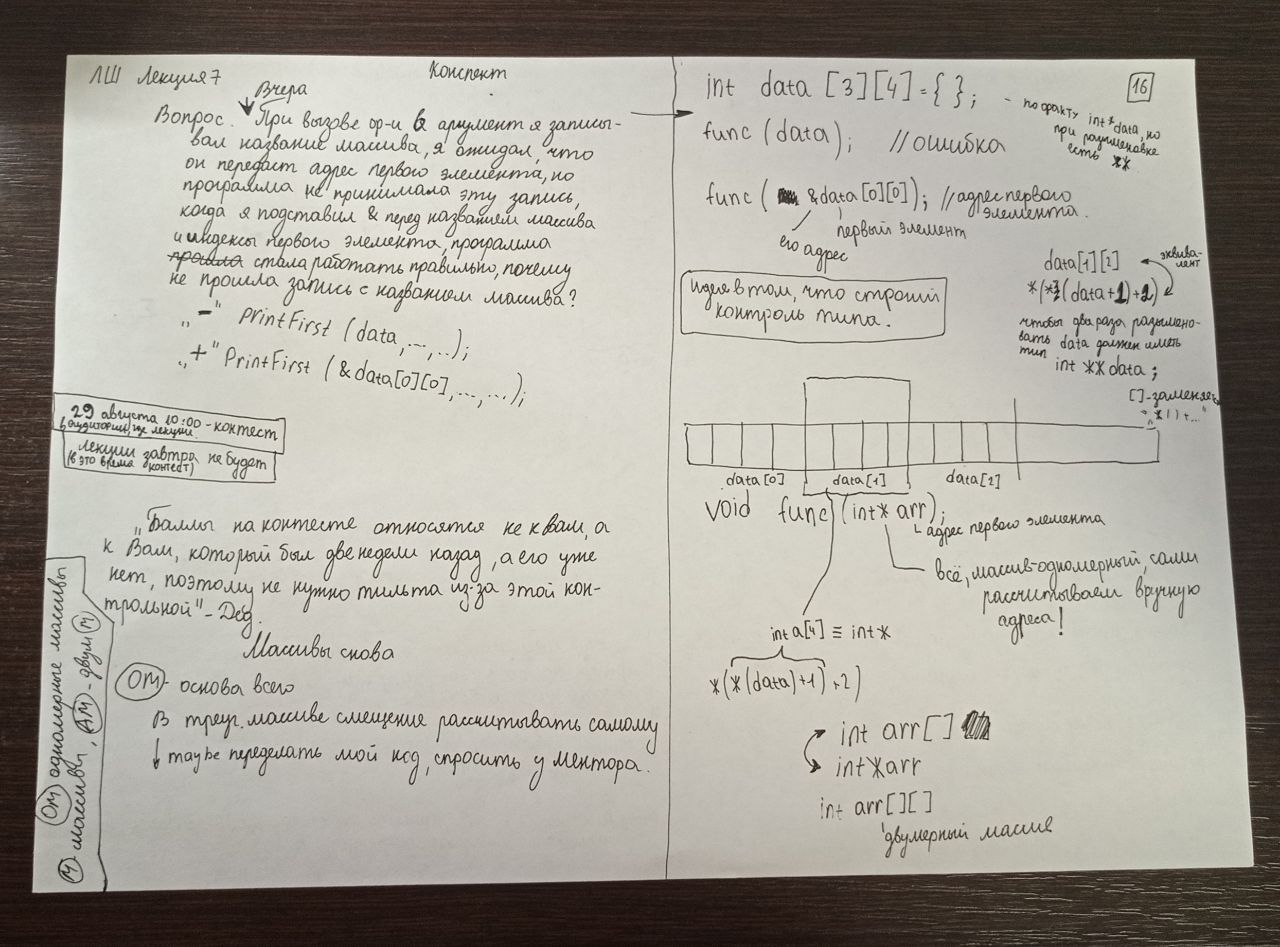 ЛШ Лекция 7
Конспект
Вчера
Вопрос. При вызове ф-и в аргумент я записы-
вал название массива, я ожидал, что
он передаст адрес первого элемента, но
программа не принимала эту запись,
когда я подставил & перед названием массива
и индексы первого элемента, программа
прошла стала работать правильно, почему
не прошла запись с названием массива?
„-" printFirst (data, ..., ..);
„+" PrintFirst (&data[0][0], ..., ...);
29 августа 10:00 - контест
в аудитории, где лекции.
лекции завтра не будет
(в это время контест)
„Баллы на контесте относятся не к вам, а
к Вам, который был две недели назад, а его уже
нет, поэтому не нужно тильта из-за этой кон-
трольной" - Дед.
Массивы снова
ОМ - основа всего
В треуг. массиве смещение рассчитывать самому
↓ maybe переделать мой код, спросить у ментора.
ОМ одномерные массивы
М - массивы, ДМ - двум М
16
int data [3][4] = { };
- по факту int* data, но
при разыменовке
есть **
func (data); //ошибка
func ( &data[0][0]); //адрес первого
элемента.
его адрес
первый элемент
Идея в том, что строгий
контроль типа.
data[1][2]
эквива-
лент
*(*(data+1)+2)
чтобы два раза разымено-
вать data должен иметь
тип
int **data;
[]-заменяет
„*( )+..."
data[0] data[1] data[2]
void func (int* arr);
адрес первого элемента
всё, массив-одномерный, сами
рассчитываем вручную
адреса!
int a[4] ≡ int*
*(*(data)+1)+2)
int arr[]
int*arr
int arr[][]
двумерный массив